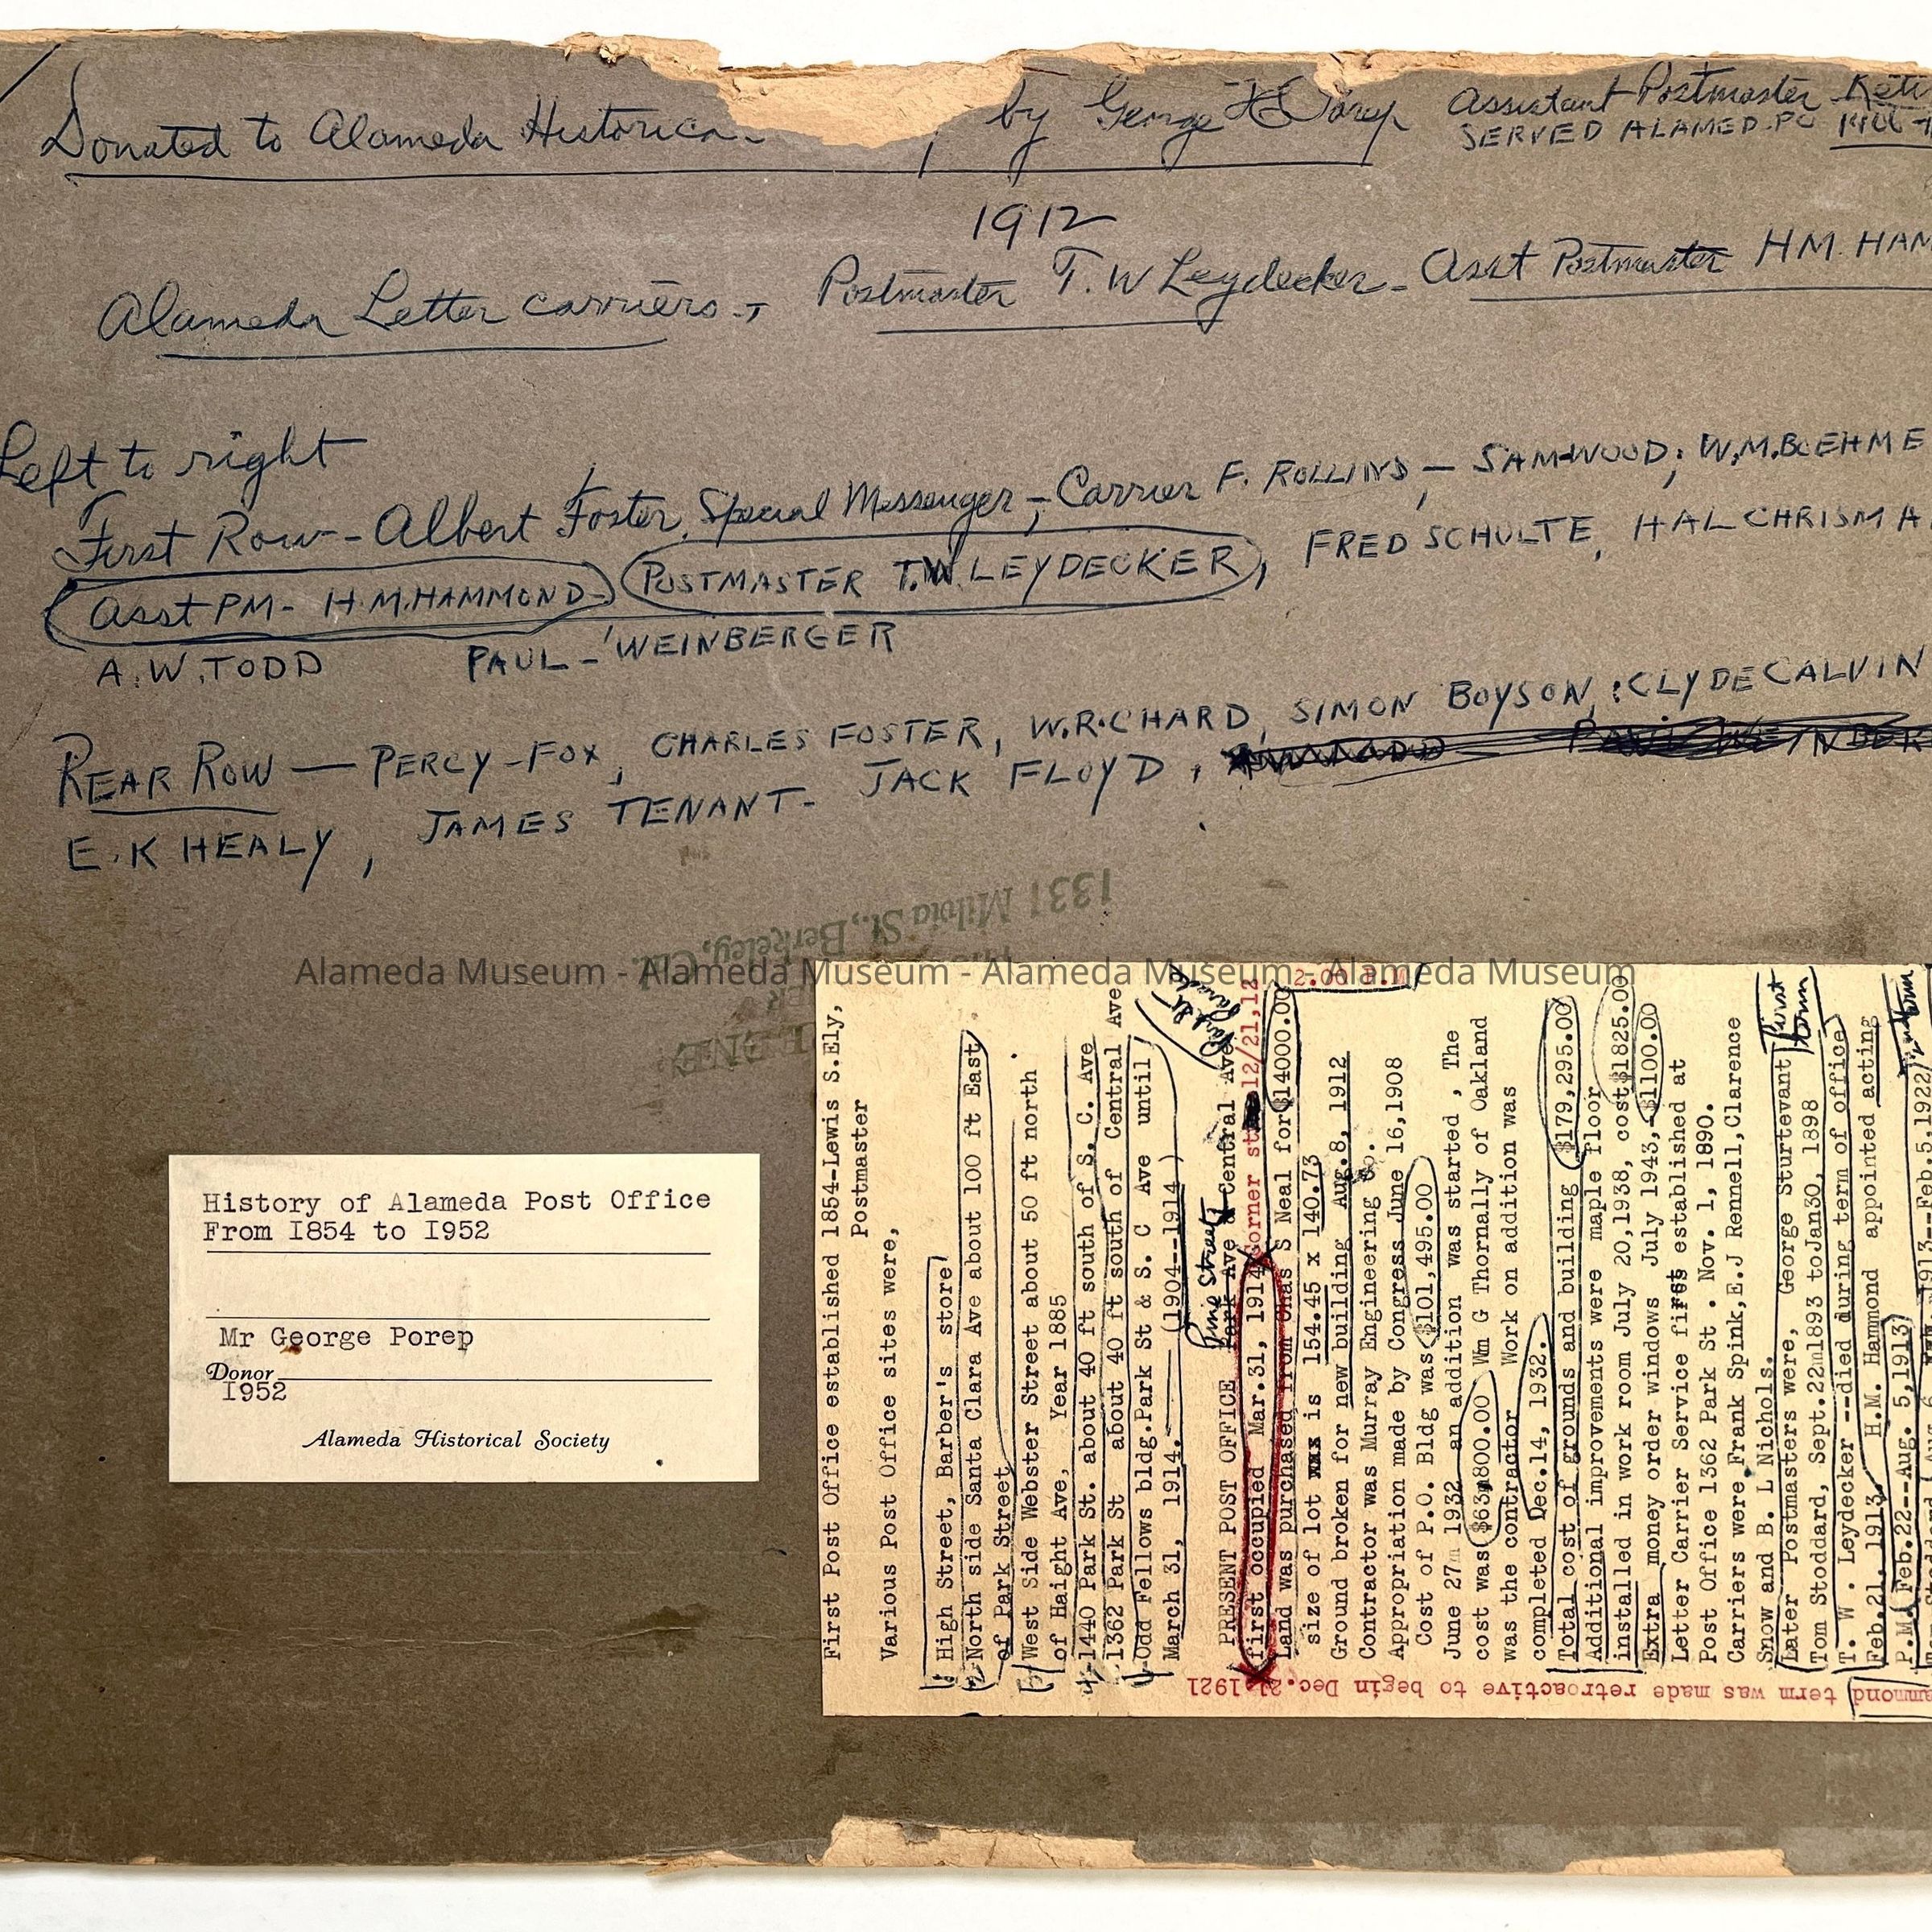 Donated to Alameda Historica
by George H Porep Assistant Postmaster
SERVED ALAMED.PO
1912
Alameda Letter carriers - Postmaster T.W Leydecker - Asst Postmaster HM. HAM
Left to right
First Row - Albert Foster, Special Messenger, - Carrier F. ROLLINS, - SAM WOOD; W.M.BOEHME
Asst PM - H.M.HAMMOND - POSTMASTER T.W.LEYDECKER, FRED SCHULTE, HAL CHRISMA
A.W.TODD PAUL - WEINBERGER
REAR ROW — PERCY - FOX, CHARLES FOSTER, W.RICHARD, SIMON BOYSON, : CLYDE CALVIN
E.K HEALY, JAMES TENANT - JACK FLOYD,
1331 Milvia St., Berkeley, Cal.
Alameda Museum - Alameda Museum - Alameda Museum - Alameda Museum
History of Alameda Post Office
From I854 to I952
Mr George Porep
Donor
I952
Alameda Historical Society
First Post Office established 1854-Lewis S.Ely,
Postmaster
Various Post Office sites were,
1 High Street, Barber's store
2 North side Santa Clara Ave about 100 ft East
of Park Street
3 West Side Webster Street about 50 ft north
of Haight Ave, Year 1885
4 1440 Park St. about 40 ft south of S. C. Ave
1362 Park St about 40 ft south of Central Ave
Odd Fellows bldg.Park St & S. C Ave until
March 31, 1914. (1904--1914 )
Pine Street
PRESENT POST OFFICE Park Ave & Central Ave
first occupied Mar.31, 1914 Corner st 12/21,12
2.00 P.M
Land was purchased from Chas S Neal for $14000.00
size of lot is 154.45 x 140.73
Ground broken for new building Aug.8, 1912
Contractor was Murray Engineering Co.
Appropriation made by Congress June 16,1908
Cost of P.O. Bldg was $101,495.00
June 27 1932 an addition was started , The
cost was $63,800.00 Wm G Thornally of Oakland
was the contractor Work on addition was
completed Dec.14, 1932.
Total cost of grounds and building $179,295.00
Additional improvements were maple floor
installed in work room July 20,1938, cost $1825.00
Extra money order windows July 1943, $1100.00
Letter Carrier Service first established at
Post Office 1362 Park St . Nov. 1, 1890.
Carriers were Frank Spink,E.J Rennell,Clarence
Snow and B. L Nichols.
Later Postmasters were, George Sturtevant
First term
Tom Stoddard, Sept.22nl893 toJan30, 1898
T. W . Leydecker --died during term of office
Feb.21,1913. H.M. Hammond appointed acting
P.M. Feb.22--Aug. 5,1913
1913--Feb.5,1922
ammond term was made retroactive to begin Dec.21,1921